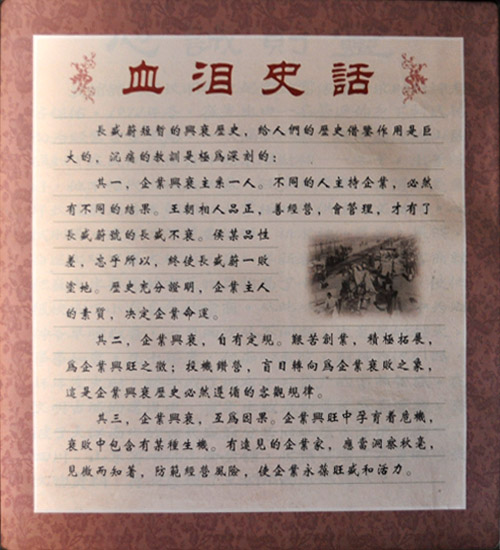 血泪史話
長盛蔚短暫的興衰歷史，給人們的歷史借鑒作用是巨
大的，沉痛的教訓是極爲深刻的：
其一，企業興衰主系一人。不同的人主持企業，必然
有不同的結果。王朝相人品正，善經營，會管理，才有了
長盛蔚號的長盛不衰。侯某品性
差，忘乎所以，終使長盛蔚一敗
塗地。歷史充分證明，企業主人
的素質，决定企業命運。
其二，企業興衰，自有定規。艱苦創業，積極拓展，
爲企業興旺之徵；投機鑽營，盲目轉向爲企業衰敗之象，
這是企業興衰歷史必然遵循的客觀規律。
其三，企業興衰，互爲因果。企業興旺中孕育着危機，
衰敗中包含有某種生機。有遠見的企業家，應當洞察秋毫，
見微而知著，防範經營風險，使企業永葆旺盛和活力。